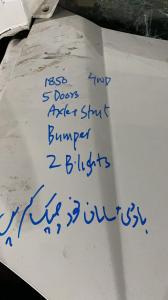 1850 4WD
5 Doors
Axle Strut
Bumper
2 B.lights
باڈی سامان خود چیک کریں